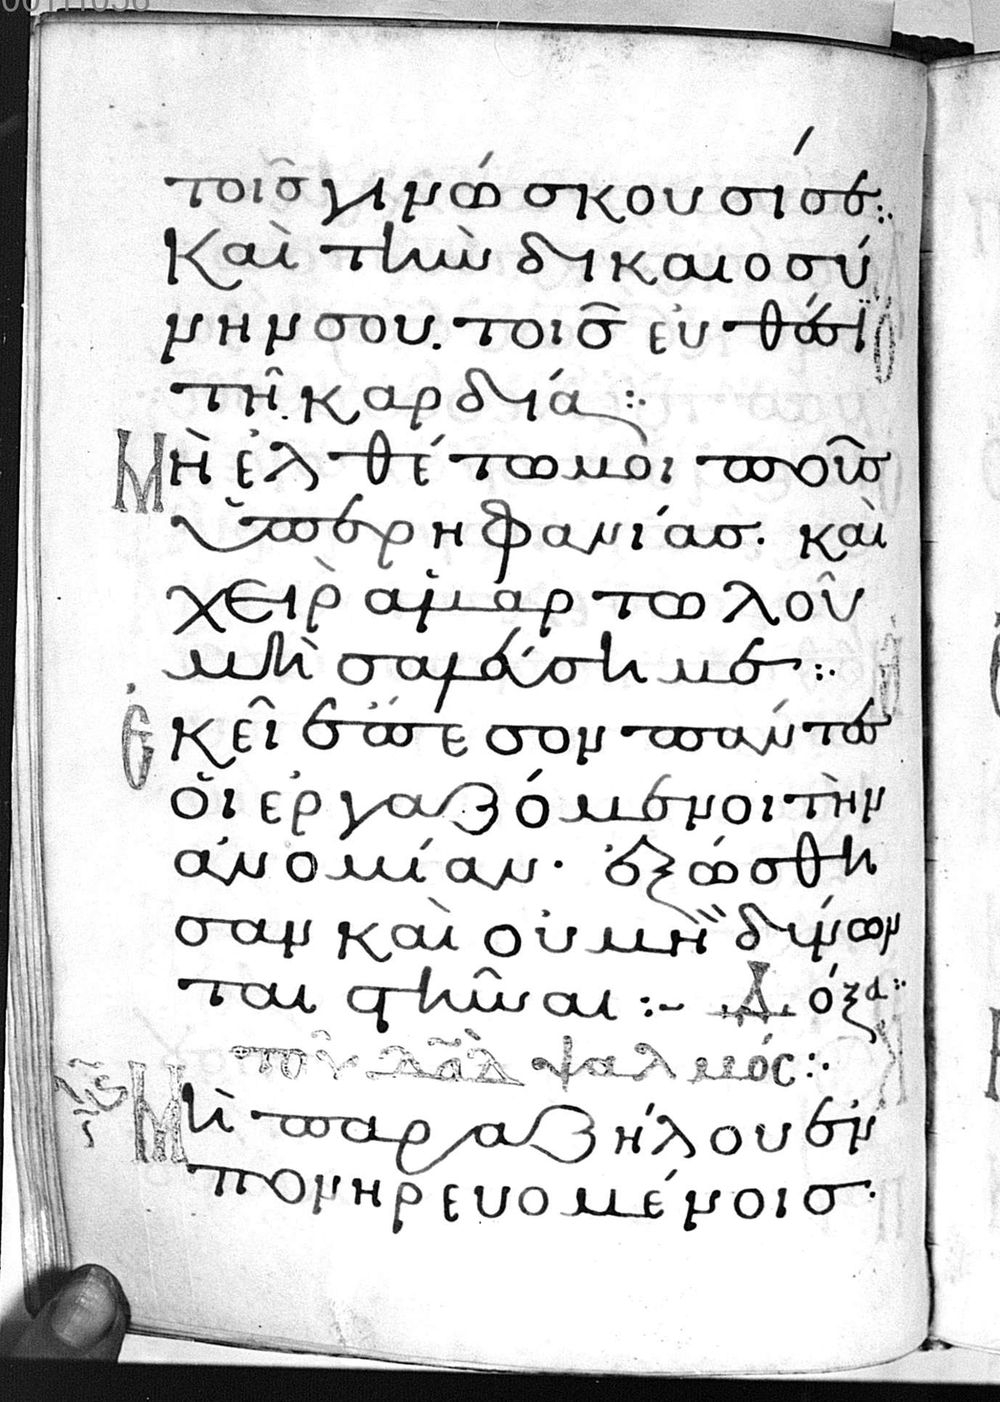 τοῖσ γινώσκουσί σε:
Καὶ τὴν δικαιοσύ
νην σου. τοῖσ εὐθέσϊ
τῆ καρδία:
Μὴ ἐλθέτω μοι ποῦσ
ὑπερηφανίασ. καὶ
χεὶρ ἁμαρτωλοῦ
μὴ σαλεύση με:
Ἐκεῖ ἔπεσον πάντεσ
οἱ ἐργαζόμενοι τὴν
ἀνομίαν· ἐξώσθη
σαν καὶ οὐ μὴ δύνων
ται στῆναι:~ Δόξα:
ψαλμός:
Μὴ παραζήλου ἐν
πονηρευομένοισ·